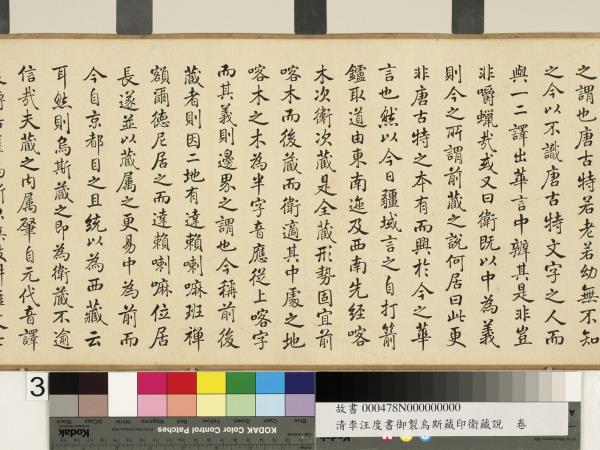 之謂也唐古特若老若幼無不知
之今以不識唐古特文字之人而
與一二譯出華言中辨其是非豈
非嚼蠟哉或又曰衛既以中為義
則今之所謂前藏之說何居曰此更
非唐古特之本有而興於今之華
言也然以今日疆域言之自打箭
鑪取道由東南迤及西南先經喀
木次衛次藏是全藏形勢固宜前
喀木而後藏而衛適其中處之地
喀木之木為半字音應從上喀字
而其義則邊界之謂也今稱前後
藏者則因二地有達賴喇嘛班禪
額爾德尼居之而達賴喇嘛位居
長遂並以藏属之更易中為前而
今自京都目之且統以為西藏云
耳然則烏斯藏之即為衛藏不逾
信哉夫藏之內属肇自元代音譯
3
故書 000478N000000000
清李汪度書御製烏斯藏印衛藏說 卷
Kodak
KODAK Color Control Patches
Blue Cyan Green Yellow Red Magenta White 3/Color Black
Kodak